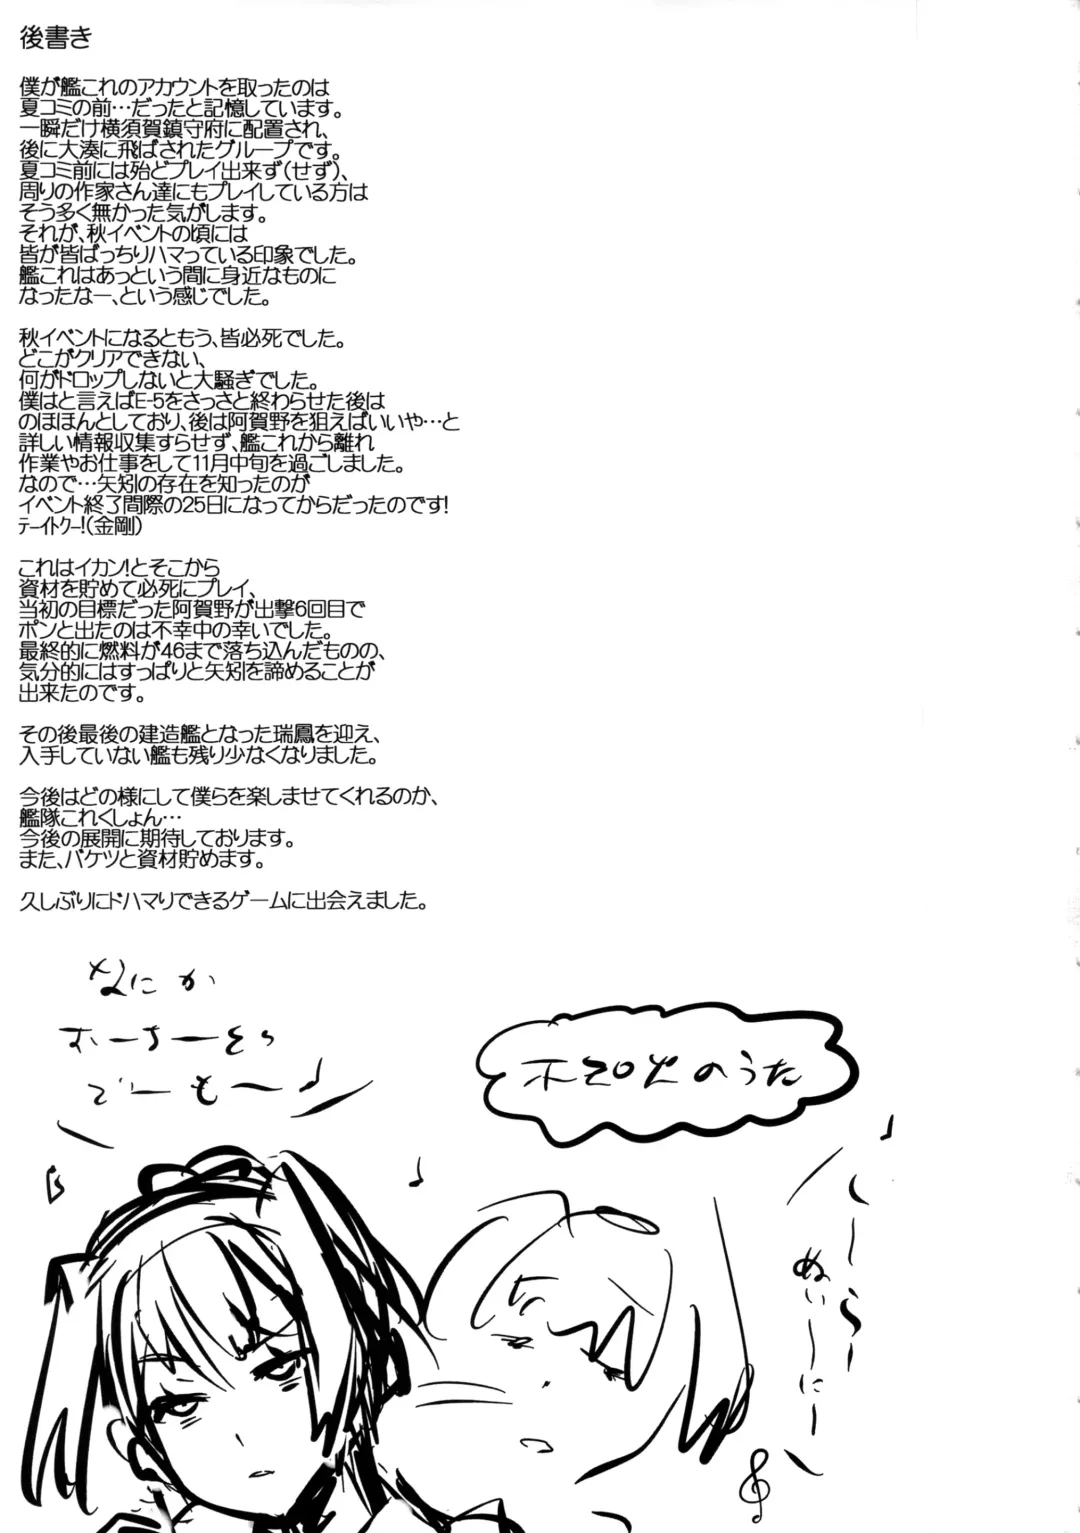 後書き
僕が艦これのアカウントを取ったのは
夏コミの前…だったと記憶しています。
一瞬だけ横須賀鎮守府に配置され、
後に大湊に飛ばされたグループです。
夏コミ前には殆どプレイ出来ず(せず)、
周りの作家さん達にもプレイしている方は
そう多く無かった気がします。
それが、秋イベントの頃には
皆が皆ばっちりハマっている印象でした。
艦これはあっという間に身近なものに
なったなー、という感じでした。
秋イベントになるともう、皆必死でした。
どこがクリアできない、
何がドロップしないと大騒ぎでした。
僕はと言えばE-5をさっさと終わらせた後は
のほほんとしており、後は阿賀野を狙えばいいや…と
詳しい情報収集すらせず、艦これから離れ
作業やお仕事をして11月中旬を過ごしました。
なので…矢矧の存在を知ったのが
イベント終了間際の25日になってからだったのです!
テートクー!(金剛)
これはイカン!とそこから
資材を貯めて必死にプレイ、
当初の目標だった阿賀野が出撃6回目で
ポンと出たのは不幸中の幸いでした。
最終的に燃料が46まで落ち込んだものの、
気分的にはすっぱりと矢矧を諦めることが
出来たのです。
その後最後の建造艦となった瑞鳳を迎え、
入手していない艦も残り少なくなりました。
今後はどの様にして僕らを楽しませてくれるのか、
艦隊これくしょん…
今後の展開に期待しております。
また、バケツと資材貯めます。
久しぶりにドハマりできるゲームに出会えました。
なにか
おーちーそう
でーも～♪
のうた
しーらー
ぬぃーにー